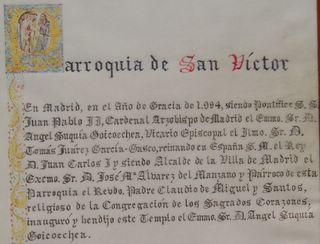 Parroquia de San Víctor
En Madrid, en el Año de Gracia de 1.994, siendo Pontífice S. S.
Juan Pablo II, Cardenal Arzobispo de Madrid el Emmo. Sr. D.
Angel Suquía Goicoechea, Vicario Episcopal el Ilmo. Sr. D.
Tomás Juárez García-Gasco, reinando en España S. M. el Rey
D. Juan Carlos I y siendo Alcalde de la Villa de Madrid el
Excmo. Sr. D. José Mª Alvarez del Manzano y Párroco de esta
Parroquia el Revdo. Padre Claudio de Miguel y Santos,
religioso de la Congregación de los Sagrados Corazones,
inauguró y bendijo este Templo el Emmo. Sr. D. Angel Suquía
Goicoechea.